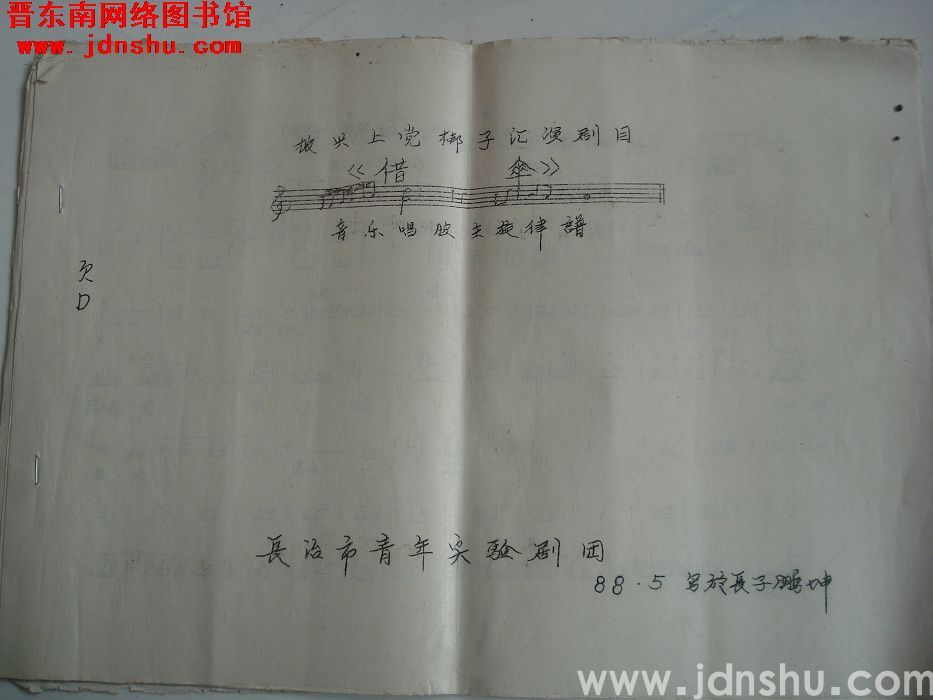 晋东南网络图书馆
www.jdnshu.com
振兴上党梆子汇演剧目
《借伞》
音乐唱腔主旋律譜
页
D
長治市青年实验剧团
88.5 写於長子鹏坤
www.jdnshu.com